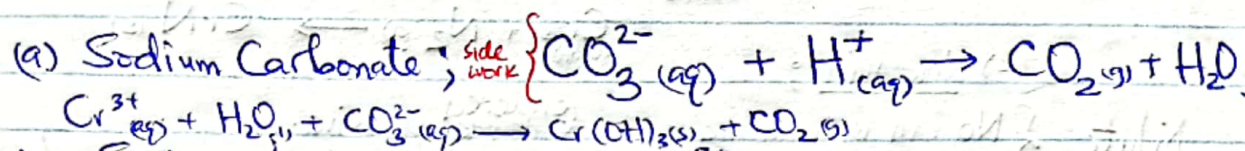 (a) Sodium Carbonate ; side work { CO₃²⁻ (aq) + H⁺ (aq) → CO₂ (g) + H₂O
Cr³⁺ (aq) + H₂O (l) + CO₃²⁻ (aq) → Cr(OH)₃(s) + CO₂ (g)